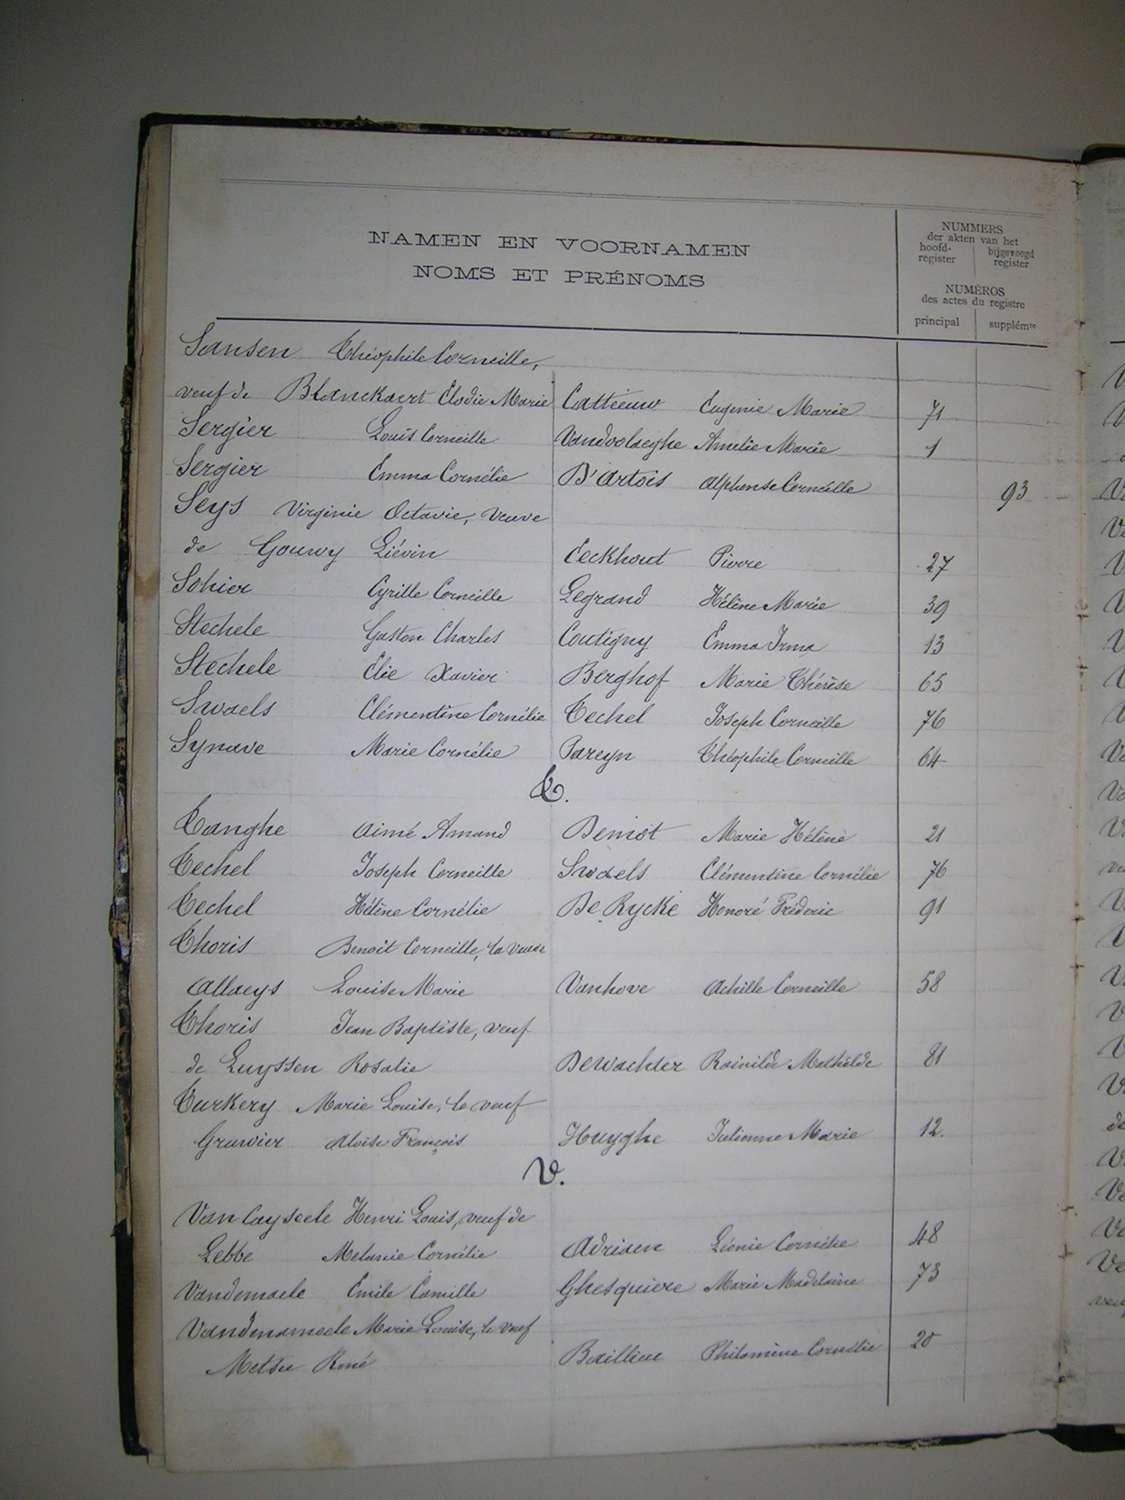 NAMEN EN VOORNAMEN
NOMS ET PRÉNOMS
NUMMERS
der akten van het
hoofd-register bijgevoegd register
NUMÉROS
des actes du registre
principal supplémre
Sansen Théophile Corneille,
veuf de Blanckaert Elodie Marie Catteeuw Eugenie Marie 71
Sergier Louis Corneille Vandoolaeghe Amelie Marie 1
Sergier Emma Cornélie D'Artois Alphonse Corneille 93
Seys Virginie Octavie, veuve
de Gouwy Liévin Eeckhout Pierre 27
Sohier Cyrille Corneille Legrand Hélène Marie 39
Stechele Gaston Charles Coutigny Emma Irma 13
Stechele Elie Xavier Berghof Marie Thérèse 65
Swaels Clémentine Cornélie Techel Joseph Corneille 76
Synave Marie Cornélie Pareyn Théophile Corneille 64
T.
Tanghe Aimé Amand Demot Marie Hélène 21
Techel Joseph Corneille Swaels Clémentine Cornélie 76
Techel Hélène Cornélie De Rycke Honoré Fréderic 91
Thoris Benoît Corneille, la veuve
Allaeys Louise Marie Vanhove Achille Corneille 58
Thoris Jean Baptiste, veuf
de Luyssen Rosalie Dewachter Rainilde Mathilde 81
Turkery Marie Louise, le veuf
Gruwier Aloïse François Huyghe Julienne Marie 12.
V.
Van Cayseele Henri Louis, veuf de
Lebbe Melanie Cornélie Adrisen Léonie Cornélie 48
Vandemaele Emile Camille Ghesquiere Marie Madelaine 73
Vandenameele Marie Louise, le veuf
Metsu René Baillieu Philomène Cornélie 20